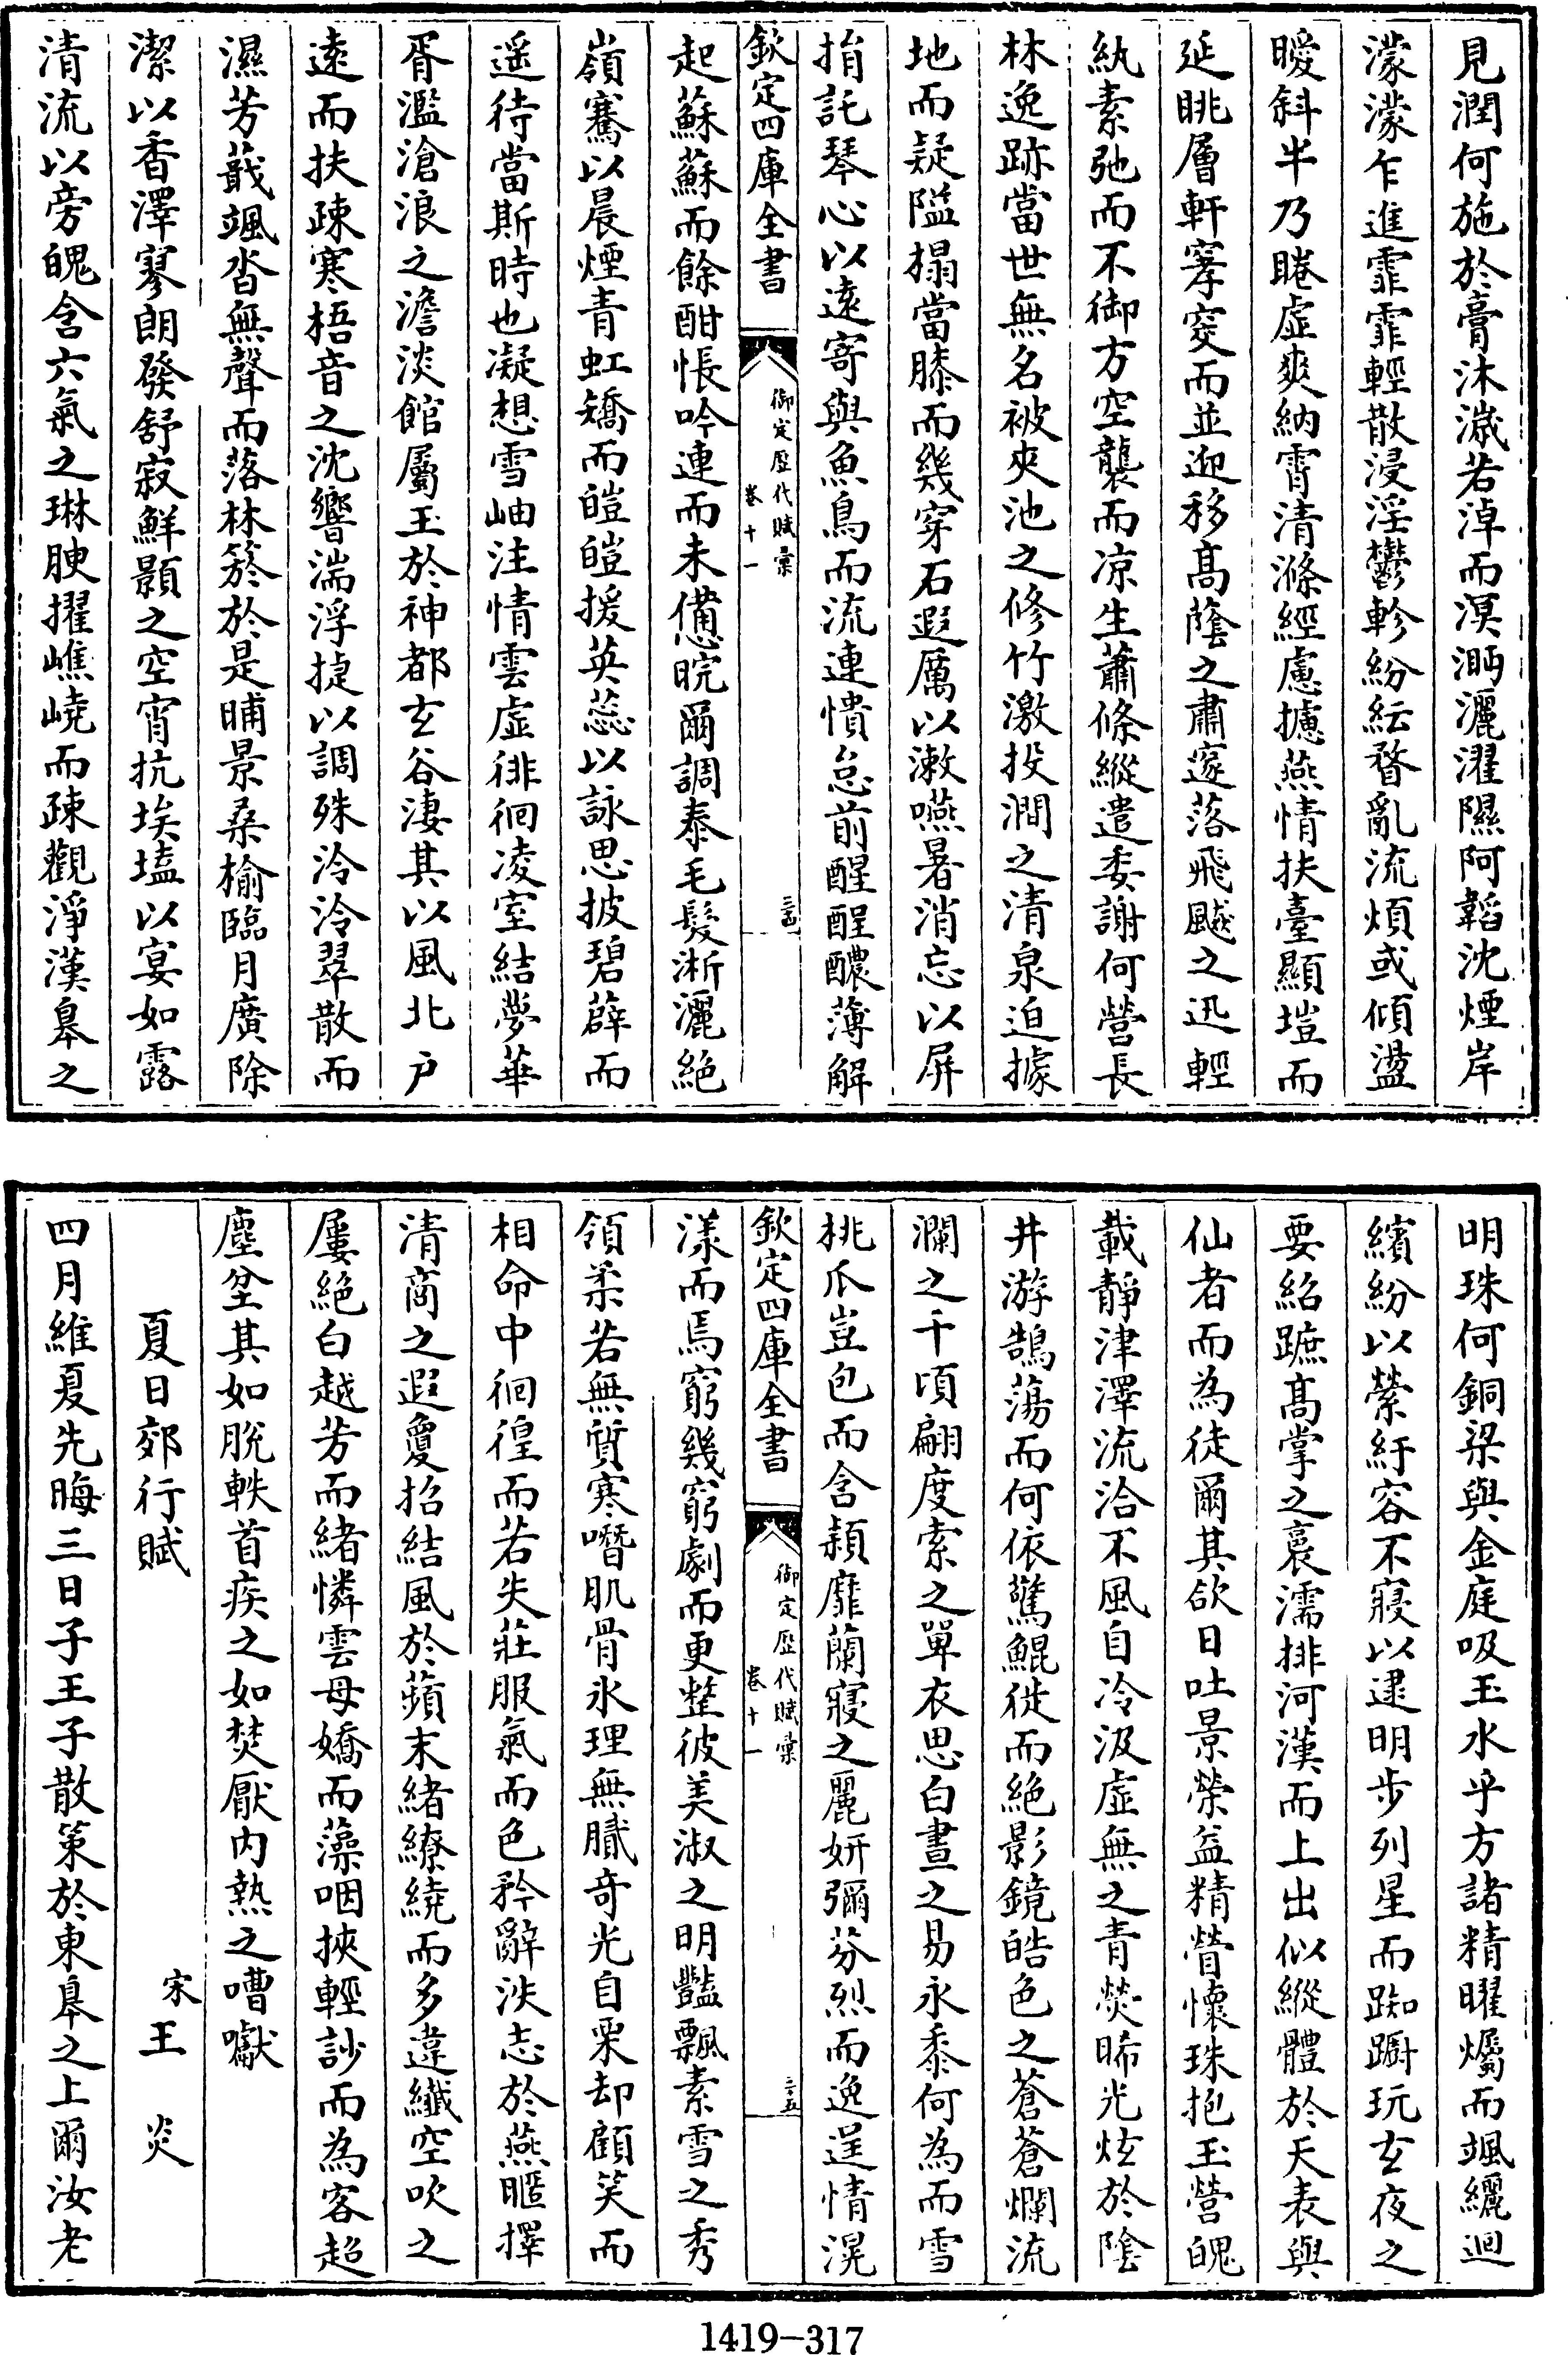 見潤何施於膏沐濊若淖而溟㴐灑濯隰阿韜沈煙岸
濛濛乍進霏霏輕散浸淫鬱軫紛紜瞀亂流煩或傾盪
曖斜半乃睠虛爽納霄清滌經慮攄燕情扶臺顯塏而
延眺層軒窙窔而並迎移髙蔭之肅邃落飛颷之迅輕
紈素弛而不御方空襲而凉生蕭條縱遣委謝何營長
林逸跡當世無名被夾池之修竹激投澗之清泉迫據
地而疑隘榻當膝而幾穿石遐厲以漱嚥暑消忘以屏
捐託琴心以遠寄與魚鳥而流連憒怠前醒酲醲薄解
欽定四庫全書
御定歴代賦彙
卷十一
三四
起蘇蘇而餘酣悵吟連而未備憁晥爾調泰毛髮淅灑絶
嶺騫以晨煙青虹矯而皚皚援英蕊以詠思披碧薜而
遥待當斯時也凝想雪岫注情雲虛徘徊凌室結夢華
胥濫滄浪之澹淡館屬玉於神都玄谷淒其以風北戸
逺而扶疎寒梧音之沈響湍浮捷以調殊泠泠翠散而
濕芳蕺颯沓無聲而落林箊於是晡景桑榆臨月廣除
潔以香澤寥朗發舒寂鮮顥之空宵抗埃壒以宴如露
清流以旁魄含六氣之琳腴擢嶕嶢而疎觀淨漢皋之
明珠何銅梁與金庭吸玉水乎方諸精曜爥而颯纚迴
繽紛以縈紆容不寢以逮明步列星而踟蹰玩玄夜之
要紹蹠髙掌之裛濡排河漢而上出似縱體於天表與
仙者而為徒爾其欱日吐景榮益精瞢懷珠抱玉營魄
載靜津澤流洽不風自冷汲虛無之青熒晞光炫於陰
井游鵠蕩而何依驚鯤徙而絶影鏡皓色之蒼蒼爛流
瀾之千頃翩度索之單衣思白晝之易永黍何為而雪
桃爪豈包而含頴靡蘭寢之麗妍彌芬烈而逸逞情滉
欽定四庫全書
御定歴代賦彙
卷十一
三五
漾而焉窮幾窮劇而更整彼美淑之明豔飄素雪之秀
領柔若無質寒噆肌骨氷理無膩奇光自栗却顧笑而
相命中徊徨而若失莊服氣而色矜辭泆志於燕暱擇
清商之遐夐招結風於蘋末緒繚繞而多違纖空吹之
屢絶白越芳而緒憐雲母嬌而藻咽挾輕訬而為客超
塵坌其如脫軼首疾之如焚厭内熱之嘈囐
夏日郊行賦
宋王炎
四月維夏先晦三日子王子散策於東皋之上爾汝老
1419-317